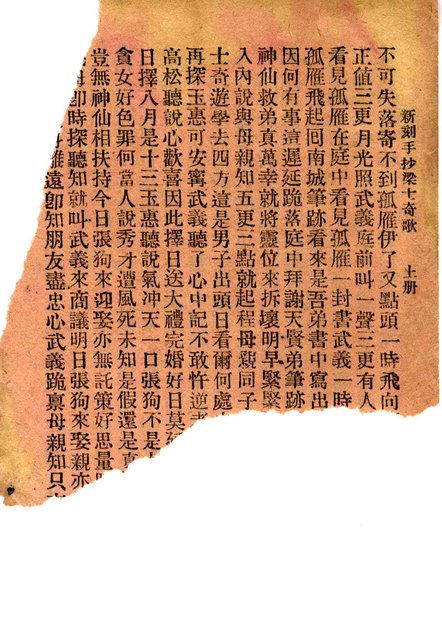 新刻手抄梁士奇歌 上册
不可失落寄不到孤雁伊了又點頭一時飛向
正值三更月光照武義庭前叫一聲三更有人
看見孤雁在庭中看見孤雁一封書武義一時
孤雁飛起回南城筆跡看來是吾弟書中寫出
因何有事這遲延跪落庭中拜謝天賢弟筆跡
神仙救弟真萬幸就將靈位來拆壞明早緊緊
入內說與母親知五更三點就起程母親同子
士奇遊學去四方這是男子出頭日看爾何處
再探玉惠可安寧武義聽了心中記不敢忤逆
高松聽說心歡喜因此擇日送大禮完婚好日莫
日擇八月是十三玉惠聽說氣冲天一口張狗不是
貪女好色罪何當人說秀才遭風死未知是假還是真
豈無神仙相扶持今日張狗來迎娶亦無託策好思量
即時探聽知就叫武義來商議明日張狗來娶親亦
雖遠即知朋友盡忠心武義跪禀母親知只